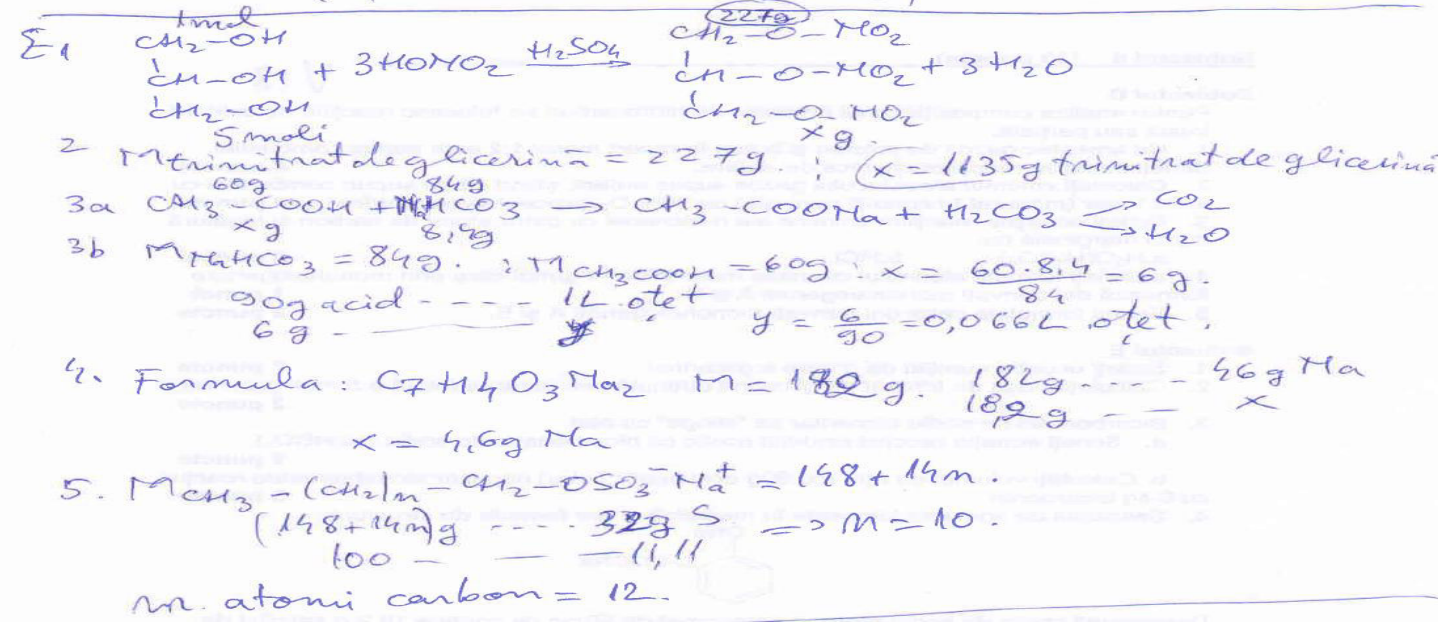 E1 1mol 227g
CH2-OH CH2-O-NO2
CH-OH + 3HONO2 H2SO4 → CH-O-NO2 + 3H2O
CH2-OH CH2-O-NO2
5 moli x g
2 Mtrinitrat de glicerină = 227g. ; x = 1135g trinitrat de glicerină
60g 84g
3a CH3-COOH + NaHCO3 → CH3-COONa + H2CO3 → CO2 → H2O
x g 8,4g
3b MNaHCO3 = 84g. ; MCH3COOH = 60g. x = 60·8,4/84 = 6g.
90g acid ---- 1L oțet
6g - y y = 6/90 = 0,066L oțet.
4. Formula: C7H4O3Na2 M = 182g. 184g --- 46g Na
18,2g -- x
x = 4,6g Na
5. MCH3-(CH2)n-CH2-OSO3⁻Na⁺ = 148 + 14n.
(148+14n)g ---- 32g S => n = 10.
100 - - - 11,11
nr. atomi carbon = 12.